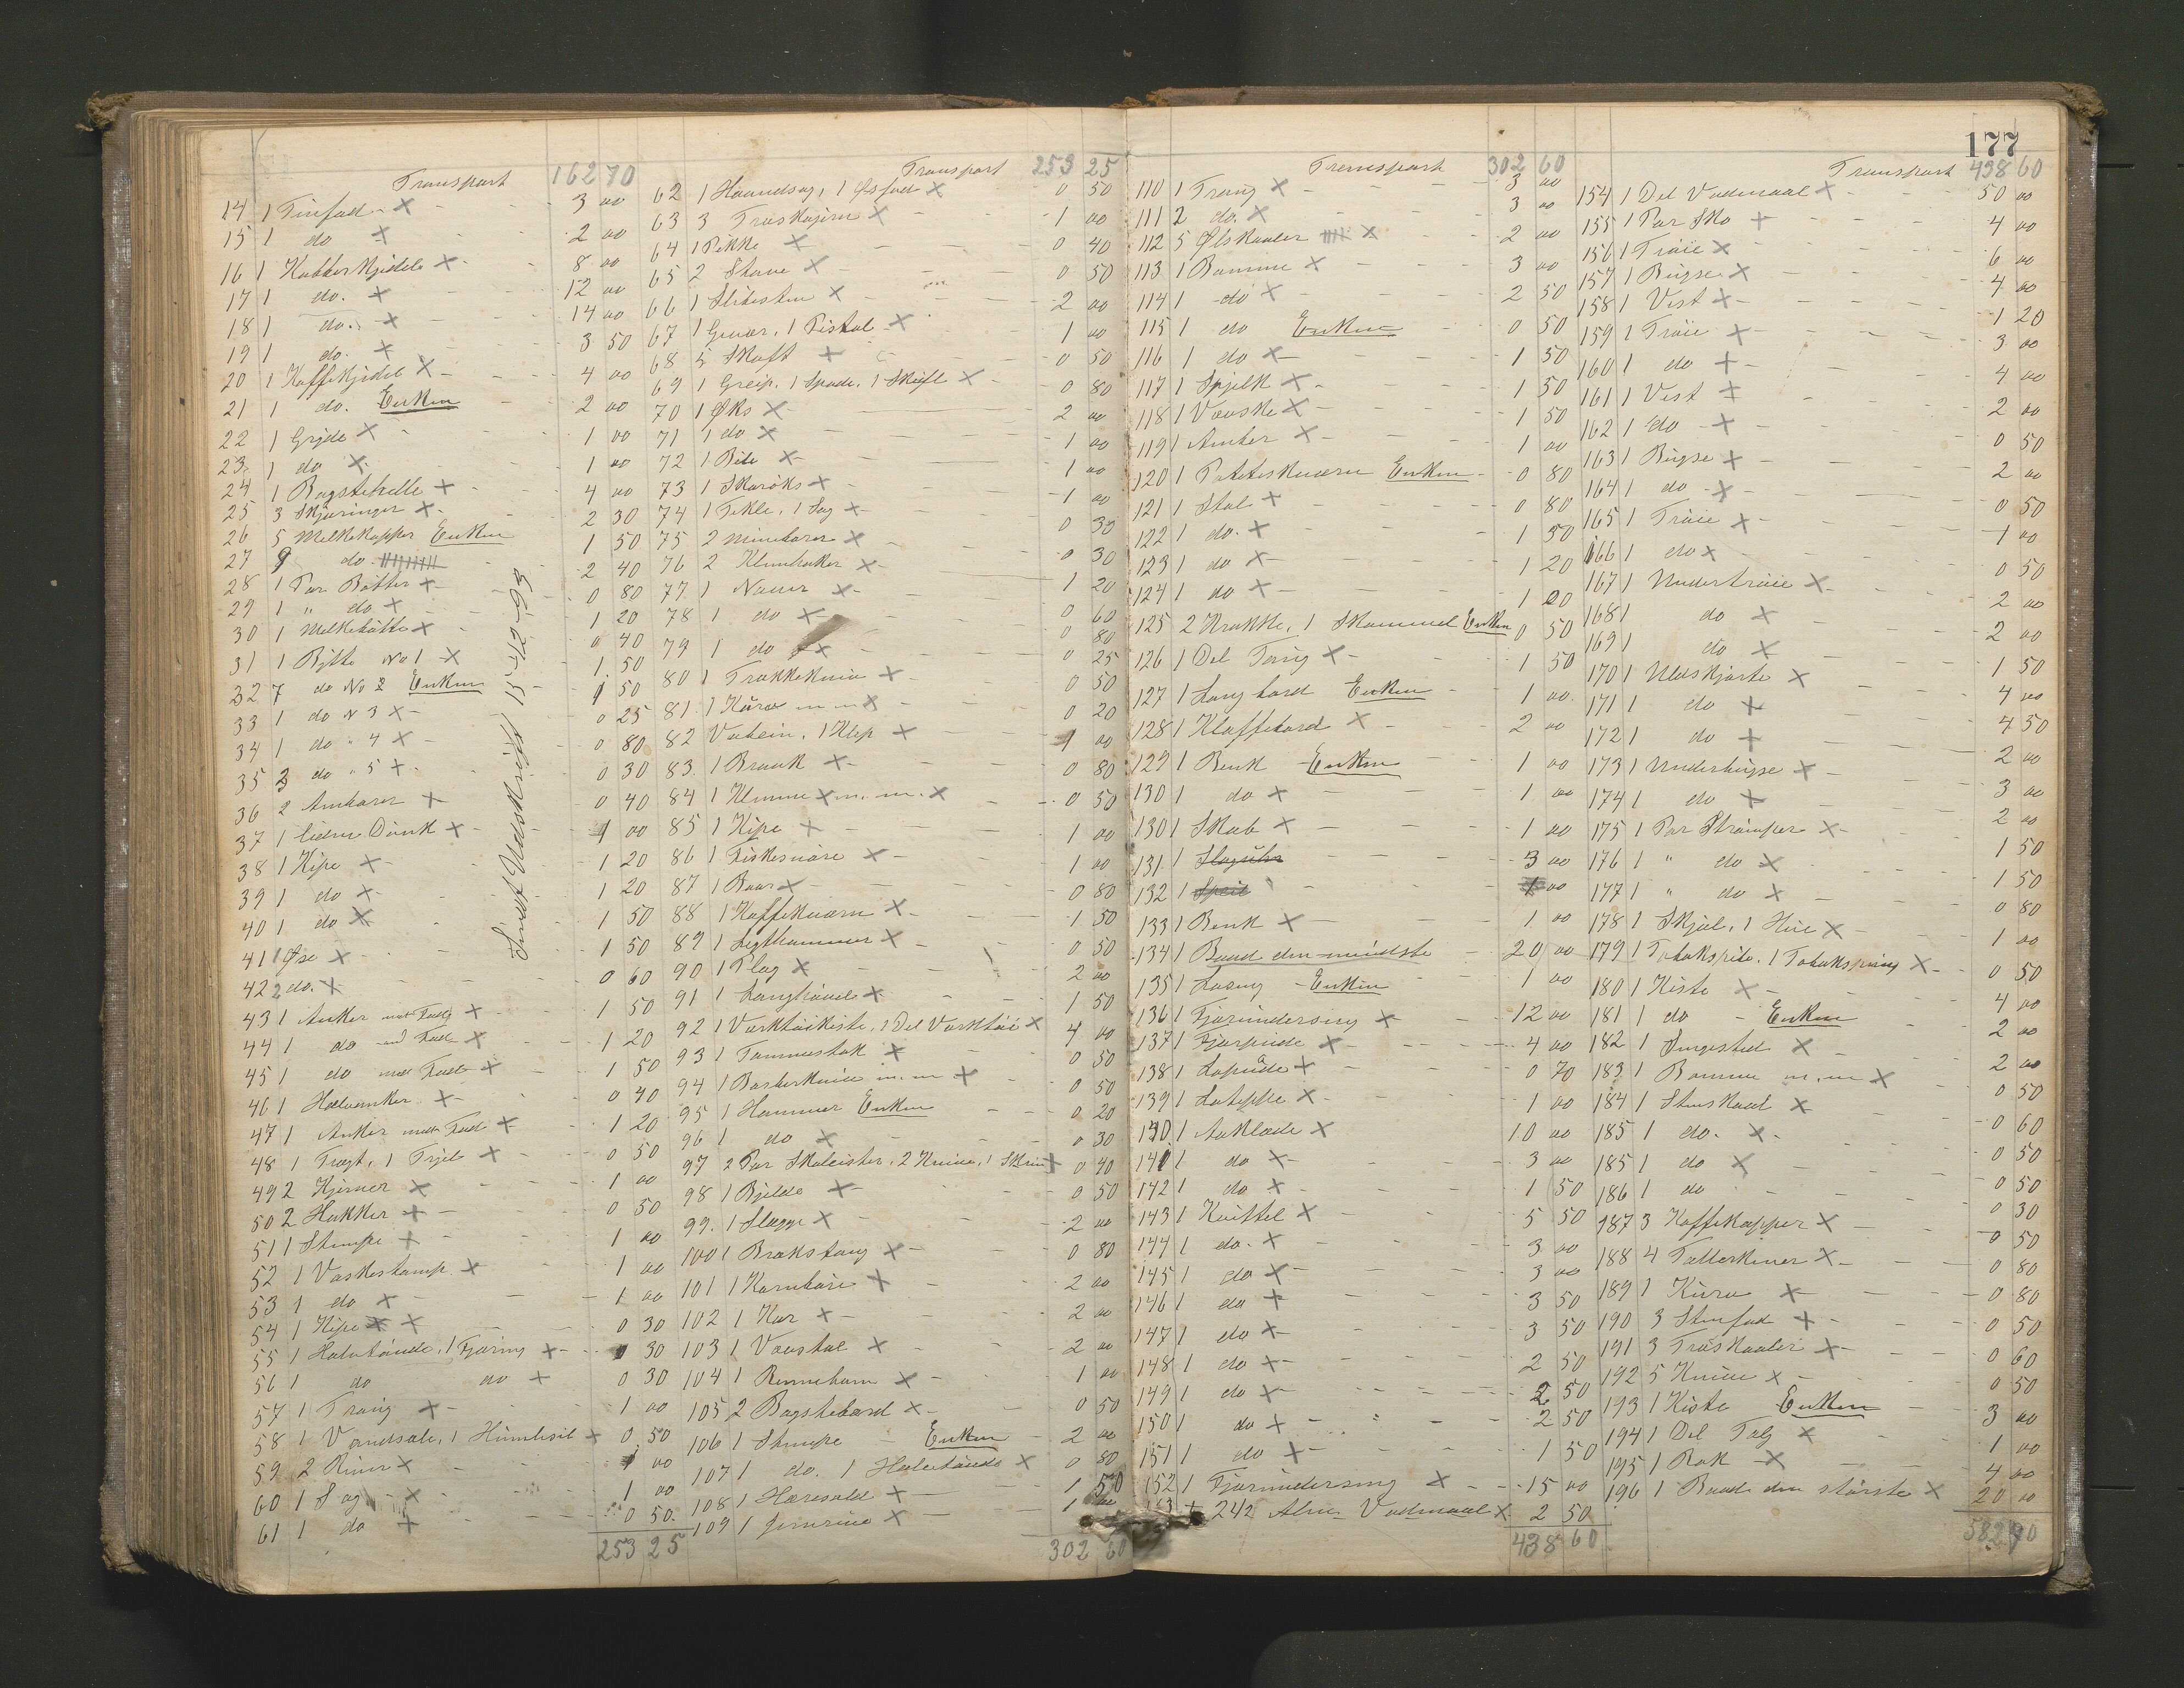 177
Transport 162 70
14 1 Tinfad 3 00
15 1 do 2 00
16 1 Kobberkjedel 8 00
17 1 do. 12 00
18 1 do. 14 00
19 1 do. 3 50
20 1 Kaffekjedel 4 00
21 1 do. Enken 2 00
22 1 Gryde 1 00
23 1 do 1 00
24 1 Bagstehelle 4 00
25 3 Skjæringer 2 30
26 5 Melkekopper Enken 1 50
27 9 do. 2 40
28 1 Par Bøtter 0 80
29 1 " do 1 20
30 1 Melkebøtte 0 40
31 1 Bøtte No 1 1 50
32 7 do No 2 Enken 1 50
33 1 do N 3 0 25
34 1 do " 4 0 80
35 3 do " 5 0 30
36 2 Ambarer 0 40
37 1 liden Dunk 1 00
38 1 Kipe 1 20
39 1 do 1 20
40 1 do 1 50
41 1 Øse 1 50
42 2 do. 0 60
43 1 Anker med Fad 1 50
44 1 do med Fad 1 20
45 1 do med Fad 1 50
46 1 Halvanker 0 40
47 1 Anker med Fad 1 20
48 1 Tragt, 1 0 50
49 2 Kjerner 1 00
50 2 Hakker 0 50
51 1 Stampe 1 00
52 1 Vaskestamp 1 00
53 1 do 1 00
54 1 Kipe 0 30
55 1 Halvtønde, 1 Fjæring 30
56 1 do do 0 30
57 1 Traug 1 00
58 1 0 50
59 2 00
60 1 Sag 1 00
61 1 do 0 50
253 25
Sendt Udskrift 15-12-93
Transport 253 25
62 1 Haandsag, 1 Øsfad 0 50
63 3 Træskjærn 1 00
64 1 Pikke 0 40
65 2 Stave 0 50
66 1 Slibesten 2 00
67 1 Gevær, 1 Pistol 1 00
68 5 Skaft 0 50
69 1 Greip, 1 Spade, 1 Skuffe 0 80
70 1 Øks 2 00
71 1 do 1 00
72 1 Bile 1 00
73 1 Skarøks 1 00
74 1 Tekle, 1 Sag 0 30
75 2 Mineborer 0 30
76 2 1 20
77 1 Naver 0 60
78 1 do 0 80
79 1 do 0 25
80 1 Trækkekniv 0 50
81 1 Kurv m m 0 20
82 1 Klep 1 00
83 1 0 80
84 1 m. m. 0 50
85 1 Kipe 1 00
86 1 Fiskesnøre 1 00
87 1 Baar 0 80
88 1 Kaffekværn 1 50
89 1 0 50
90 1 Plog 2 00
91 1 Langhøvel 1 50
92 1 Værktøikiste, 1 Del Værktøi 4 00
93 1 Tommestok 0 50
94 1 Barberkniv m. m 0 50
95 1 Hammer Enken 0 20
96 1 do 0 30
97 2 Par Skoleister, 2 Knive, 1 Skrin 0 40
98 1 Bjelde 0 50
99. 1 Slægge 2 00
100 1 Brækstang 0 80
101 1 Kornbøre 2 00
102 1 Kar 2 00
103 1 Vævstol 2 00
104 1 1 00
105 2 Bagstebord 0 50
106 1 Stampe Enken 2 00
107 1 do. 1 Halvtønde 0 80
108 1 Haresold 1 50
109 1 1 00
302 60
Transport 302 60
110 1 Traug 3 00
111 2 do. 3 00
112 5 Ølskaaler 2 00
113 1 Bomme 3 00
114 1 do 2 50
115 1 do Enken 0 50
116 1 do 1 50
117 1 Spjelk 1 50
118 1 Væske 1 50
119 1 Amber 1 00
120 1 Potteskværn Enken 0 80
121 1 Stol 0 80
122 1 do. 1 50
123 1 do 1 20
124 1 do 1 00
125 2 Krakke, 1 Skammel Enken 0 50
126 1 Del Taug 1 50
127 1 Langbord Enken 1 00
128 1 Klaffebord 2 00
129 1 Benk Enken 1 00
130 1 do 1 00
130 1 Skab 1 00
131. 1 Slaguhr 3 00
132 1 Speil 1 00
133 1 Benk 1 00
134 1 Baad den mindste 20 00
135 1 Enken 1 00
136 1 Fjærundersæng 12 00
137 1 Fjærpude 4 00
138 1 Lopude 0 70
139 1 Loteppe 1 00
140 1 Aaklæde 10 00
141 1 do 3 00
142 1 do 1 50
143 1 Kvittel 5 50
144 1 do. 3 00
145 1 do 3 00
146 1 do 3 50
147 1 do 3 50
148 1 do 2 50
149 1 do 2 50
150 1 do 2 50
151 1 do 1 50
152 1 Fjærundersæng 15 00
153 2 1/2 Alen Vadmaal 2 50
438 60
Transport 438 60
154 1 Del Vadmaal 50 00
155 1 Par Sko 4 00
156 1 Trøie 6 00
157 1 Bugse 4 00
158 1 Vest 1 20
159 1 Trøie 3 00
160 1 do 4 00
161 1 Vest 2 00
162 1 do 0 50
163 1 Bugse 2 00
164 1 do 0 50
165 1 Trøie 1 00
166 1 do 0 50
167 1 Undertrøie 2 00
168 1 do 2 00
169 1 do 1 50
170 1 Uldskjorte 4 00
171 1 do 4 50
172 1 do 2 00
173 1 Underbugse 3 00
174 1 do 2 00
175 1 Par Strømper 1 50
176 1 " do 1 50
177 1 " do 0 80
178 1 Skjæl, 1 Hue 1 00
179 1 Tobakspibe, 1 Tobakspung 0 50
180 1 Kiste 4 00
181 1 do Enken 2 00
182 1 Sengested 2 00
183 1 Bomme m. m 0 50
184 1 Stenskaal 0 60
185 1 do. 0 50
185 1 do 0 50
186 1 do 0 30
187 3 Kaffekopper 0 50
188 4 Tallerkener 0 80
189 1 Kurv 0 80
190 3 Stenfad 0 50
191 3 Træskaaler 0 60
192 5 Knive 0 50
193 1 Kiste Enken 3 00
194 1 Del Talg 1 00
195 1 Rok 4 00
196 1 Baad den største 20 00
582 90